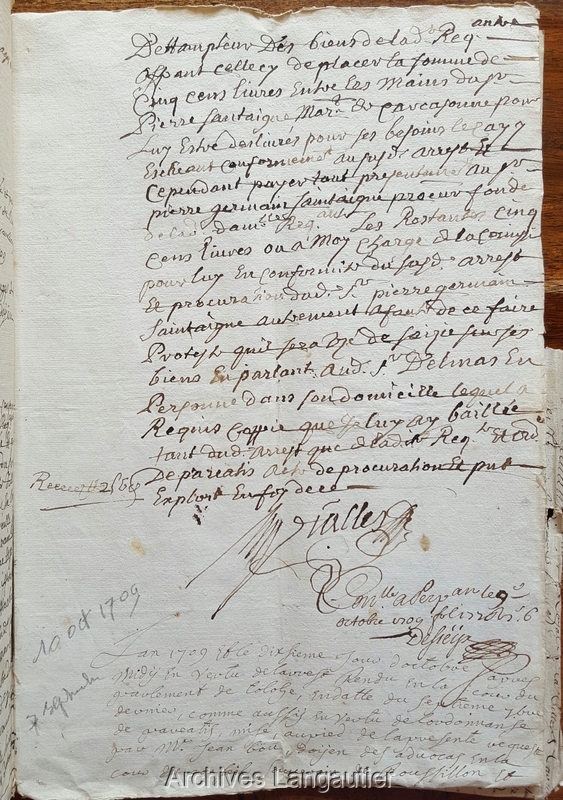 antre
Des biens de la d. Req
affant celle cy de placer la somme de
Cinq cens livres Entre les Mains du Sr
Pierre Saintaigne Mar. de Carcasonne pour
Luy Estre deslivrés pour ses besoins le cas y
Escheant Conformement au susd. arrest Et
Cependant payer tout presentement au Sr
pierre germain Saintaigne procur fonde
de lad. dam.lle Req. Les Restantes Cinq
Cens livres ou a Moy Charge de la
pour luy En conformite du susd. arrest
Et procuration dud. Sr. pierre germain
Saintaigne autrement a faute de ce faire
Proteste quil sera Uze de saizie sur ses
biens En parlant Aud. Sr. Delmas En
Personne dans son domicille lequel a
Requis Coppie que je luy ay baillée
tant dud. Arrest que de ladite Req.te Et ord
De pareatis Acte de procuration Et pnt
Exploit En foy de ce
a Perpan le 9e
octobre 1709
10 oct 1709
7 septembre
Lan 1709 et le dixieme Jour doctobre apres
Midy En Vertu de larrest Rendu en la cour du
parlement de tologe, en datte du septieme 7bre
dernier, comme aussy en vertu de lordonnanse
de pareatis, mise au pied de la presente requeste
par Mr Jean doyen des advocas en la
cour Roussillon Et
Archives Langautier